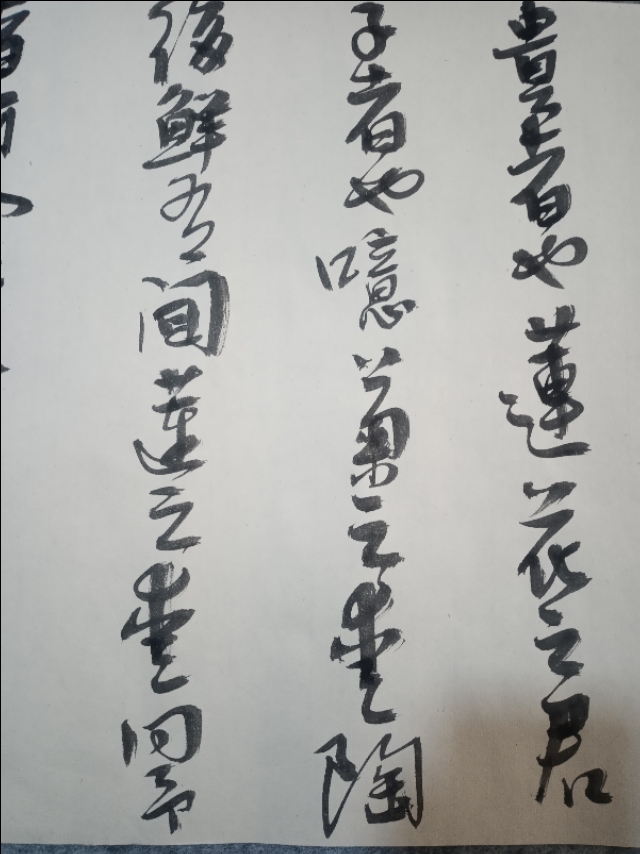 貴者也蓮花之君
子者也噫菊之愛陶
後鮮有聞蓮之愛同予